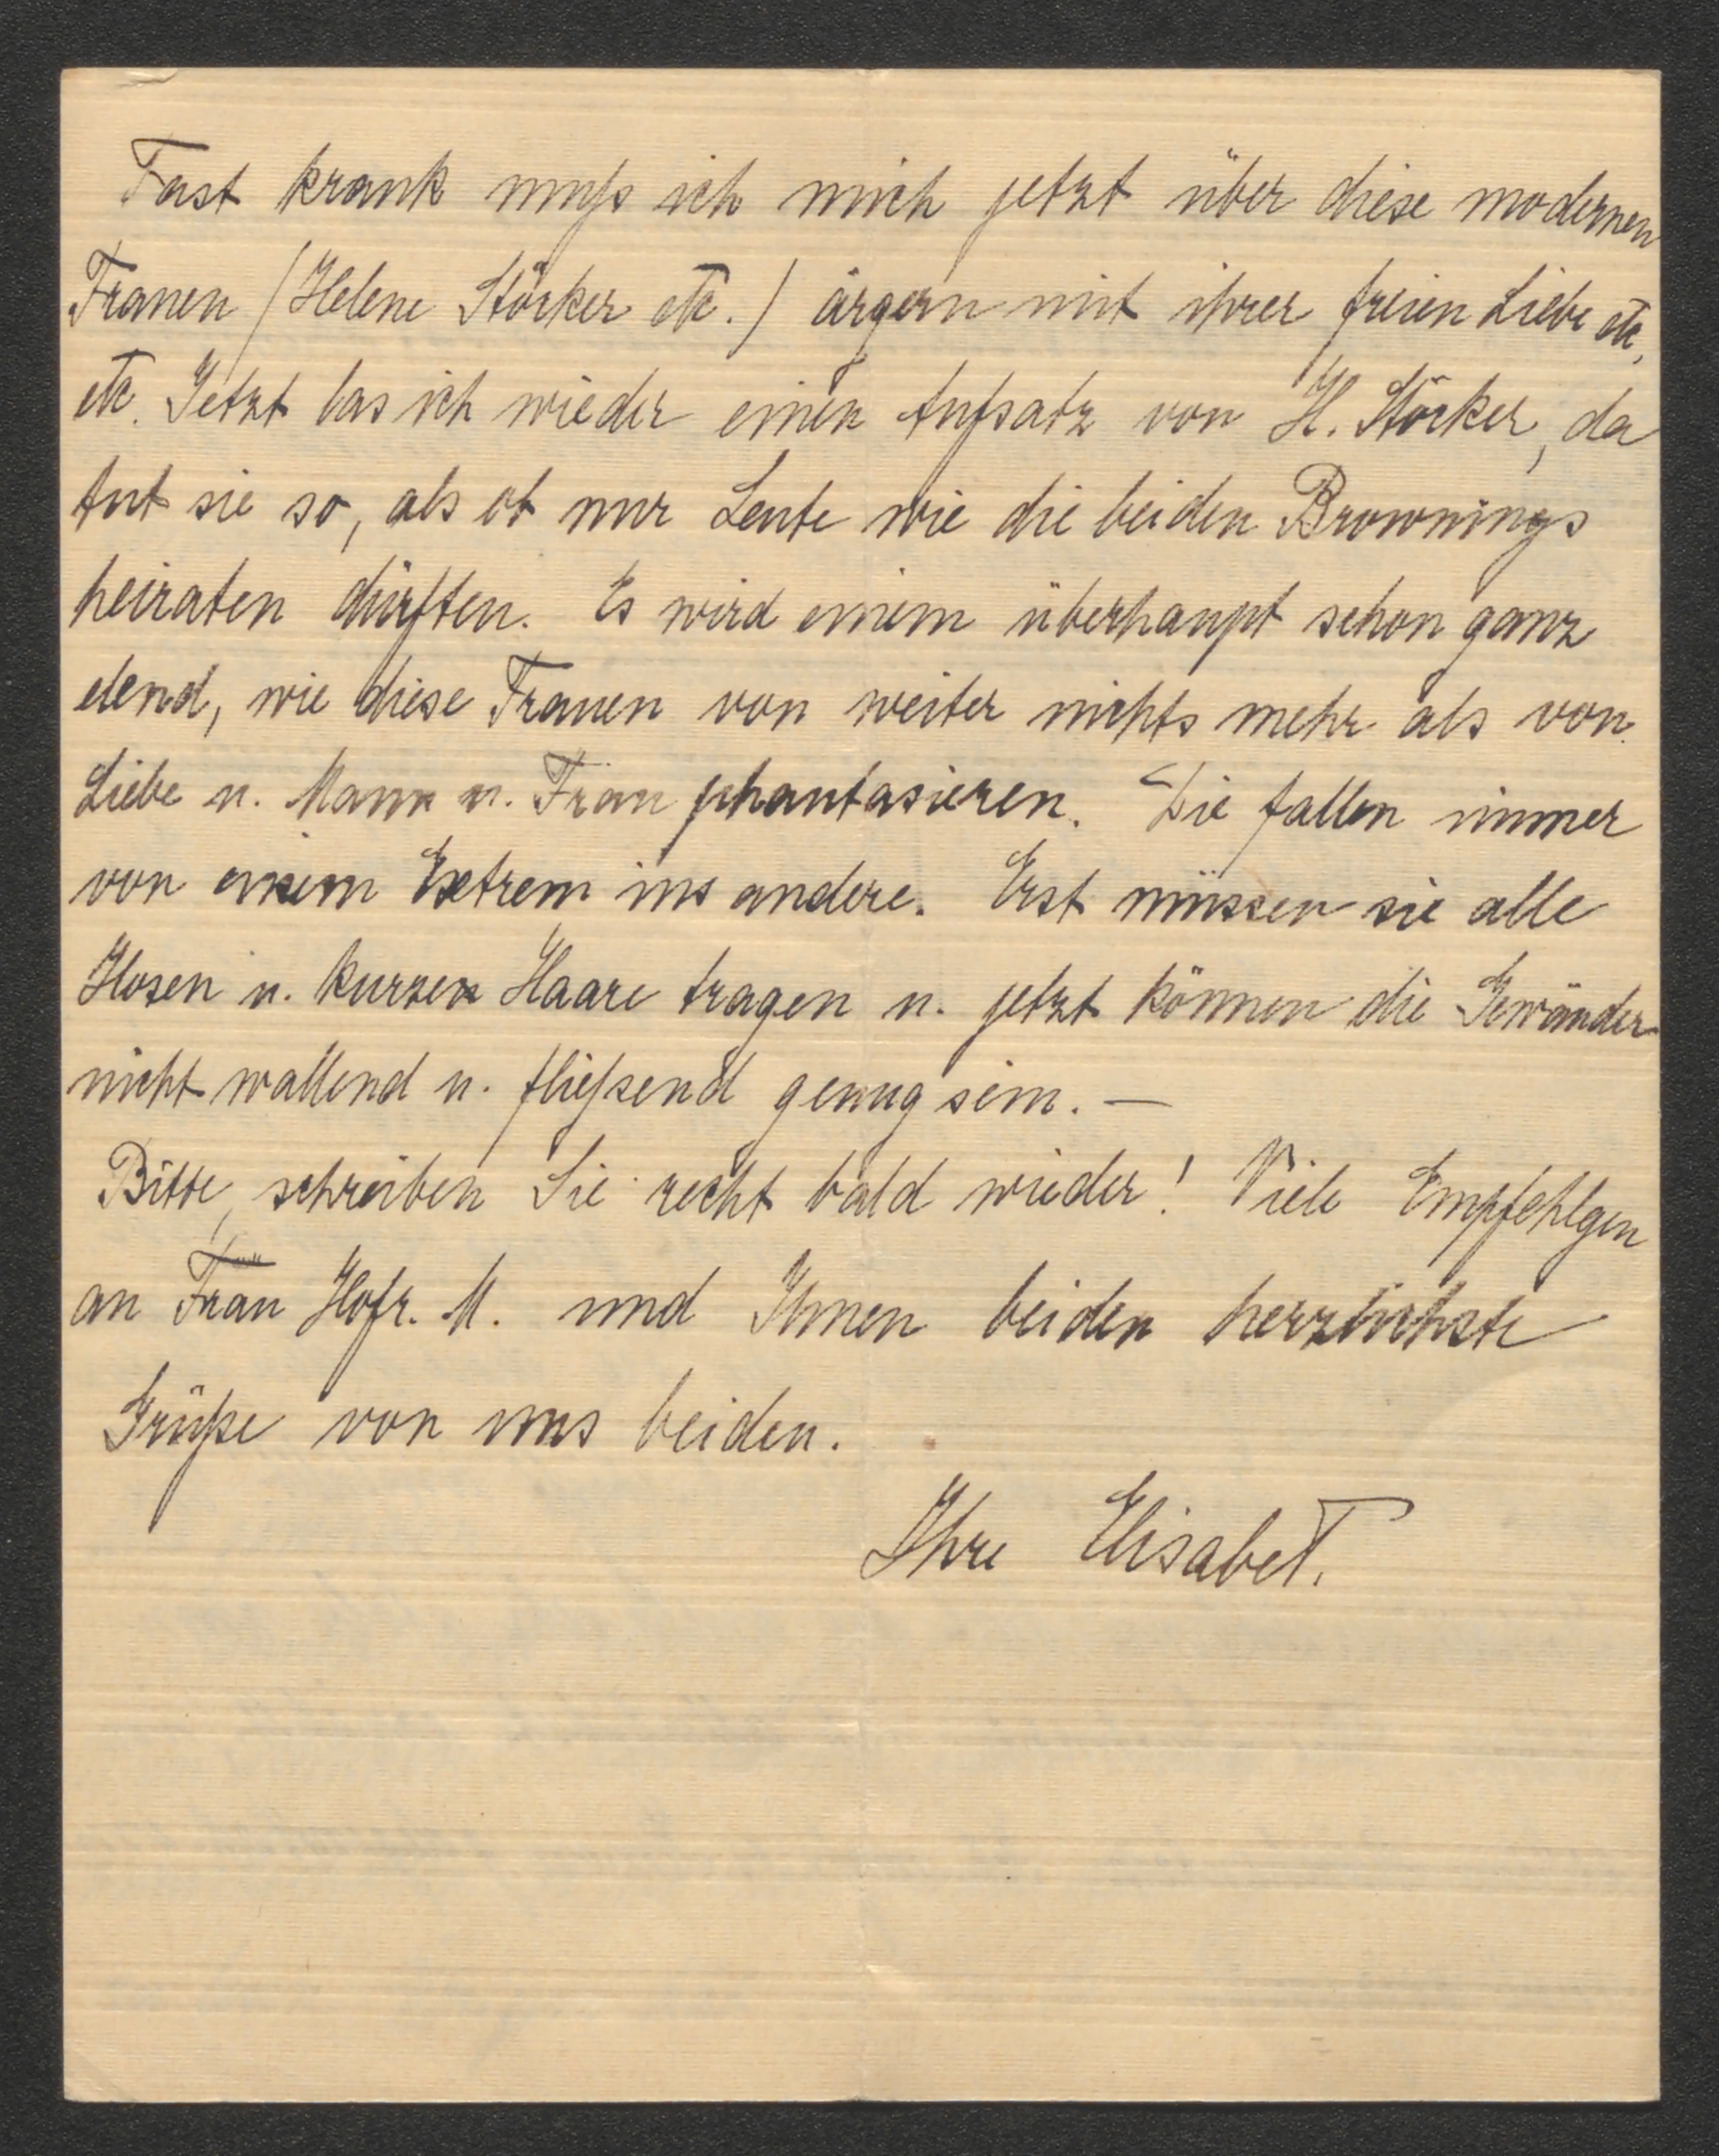 Fast krank muß ich mich jetzt über diese modernen
Frauen (Helene Stöcker etc.) ärgern mit ihrer freien Liebe etc.
etc. Jetzt las ich wieder einen Aufsatz von H. Stöcker, da
tut sie so, als ob nur Leute wie die beiden Brownings
heiraten dürften. Es wird einem überhaupt schon ganz
elend, wie diese Frauen von weiter nichts mehr als von
Liebe u. Mann u. Frau phantasieren. Die fallen immer
von einem Extrem ins andere. Erst müssen sie alle
Hosen u. kurzen Haare tragen u. jetzt können die Gewänder
nicht wallend u. fließend genug sein. —
Bitte, schreiben Sie recht bald wieder! Viele Empfehlgen
an Frau Hofr. M. und Ihnen beiden herzlichste
Grüße von uns beiden.
Ihre Elisabet.